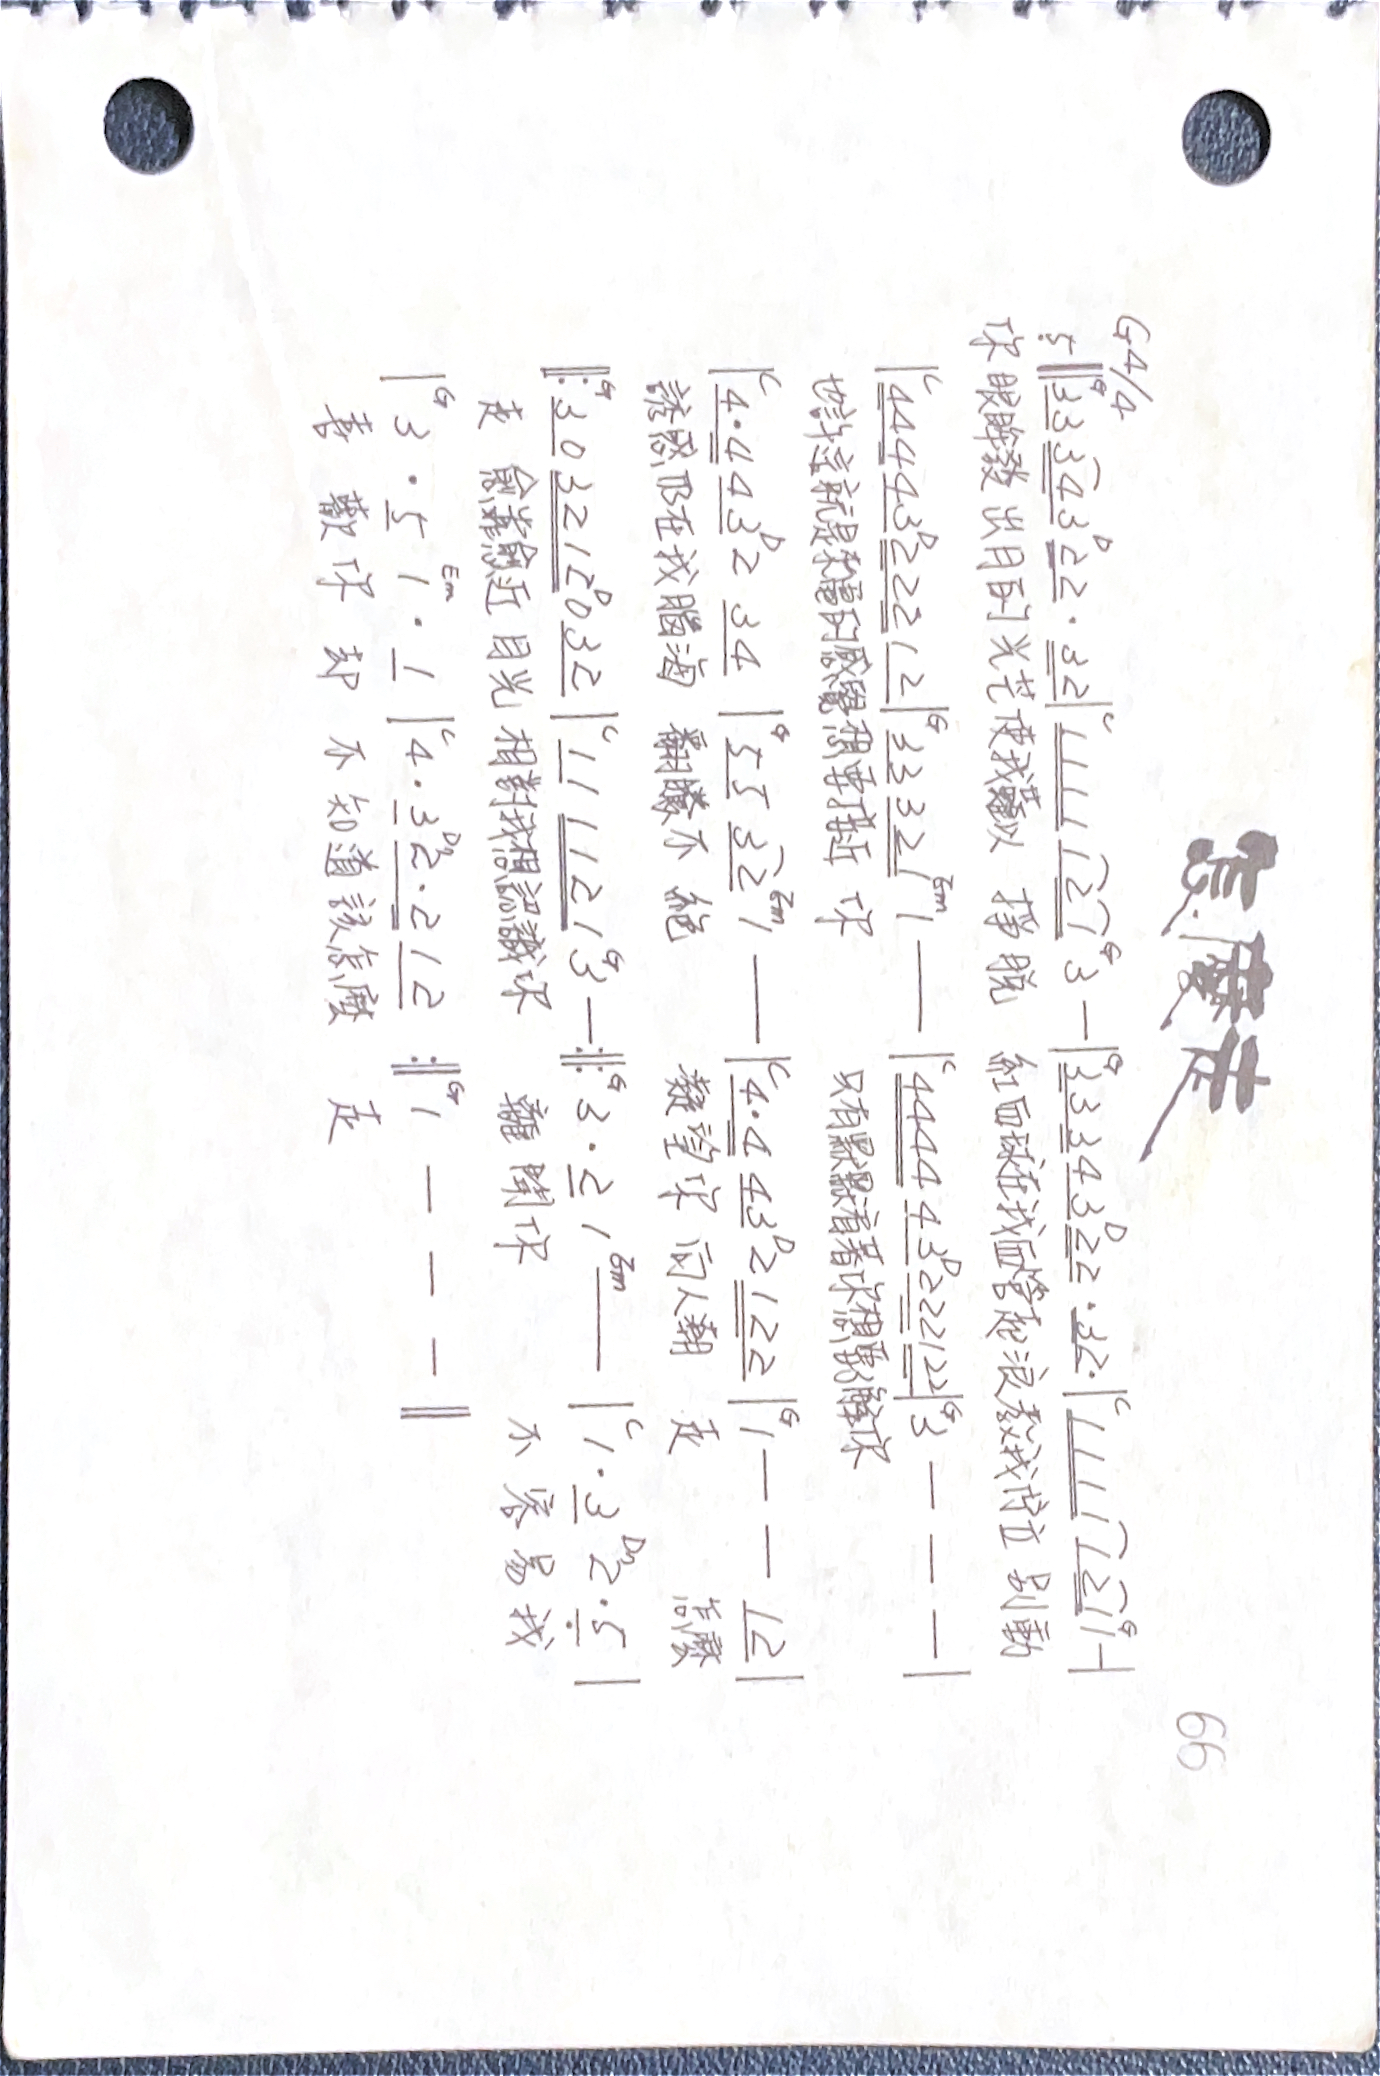 怎麼走
66
G4/4
5‖G 33 343 D 22・32|C 1111 121 G 3 —|G 333 43 D 22・32・|C 1111 121 G 1 —|
你眼眸發出月的光芒使我難以 掙脫 紅血球在我血管起浪教我佇立 別動
|C 44443 D 22212|G 33321 Em 1 ——|C 444443 D 222122|G 3 — — —|
也許這就是來電的感覺想要接近 你 只有默默看著你想要了解你
|C 4・443 D 2 34|G 55 32 Em 1 ——|C 4・443 D 2 122|G 1 — — 12|
誘惑仍在我腦海 翻騰不 絕 凝望你 向人潮 走 怎麼
‖:G 30 3212 D 032|C 11 1121 G 3 —:‖:G 3・2 1 Em ——|C 1・3 D7 2・5|
走 愈靠愈近 目光 相對我想認識你 離開你 不容易我
|G 3・5 Em 1・1|C 4・3 D7 2・2 12:‖G 1 — — —‖
喜歡你 却 不知道該怎麼 走